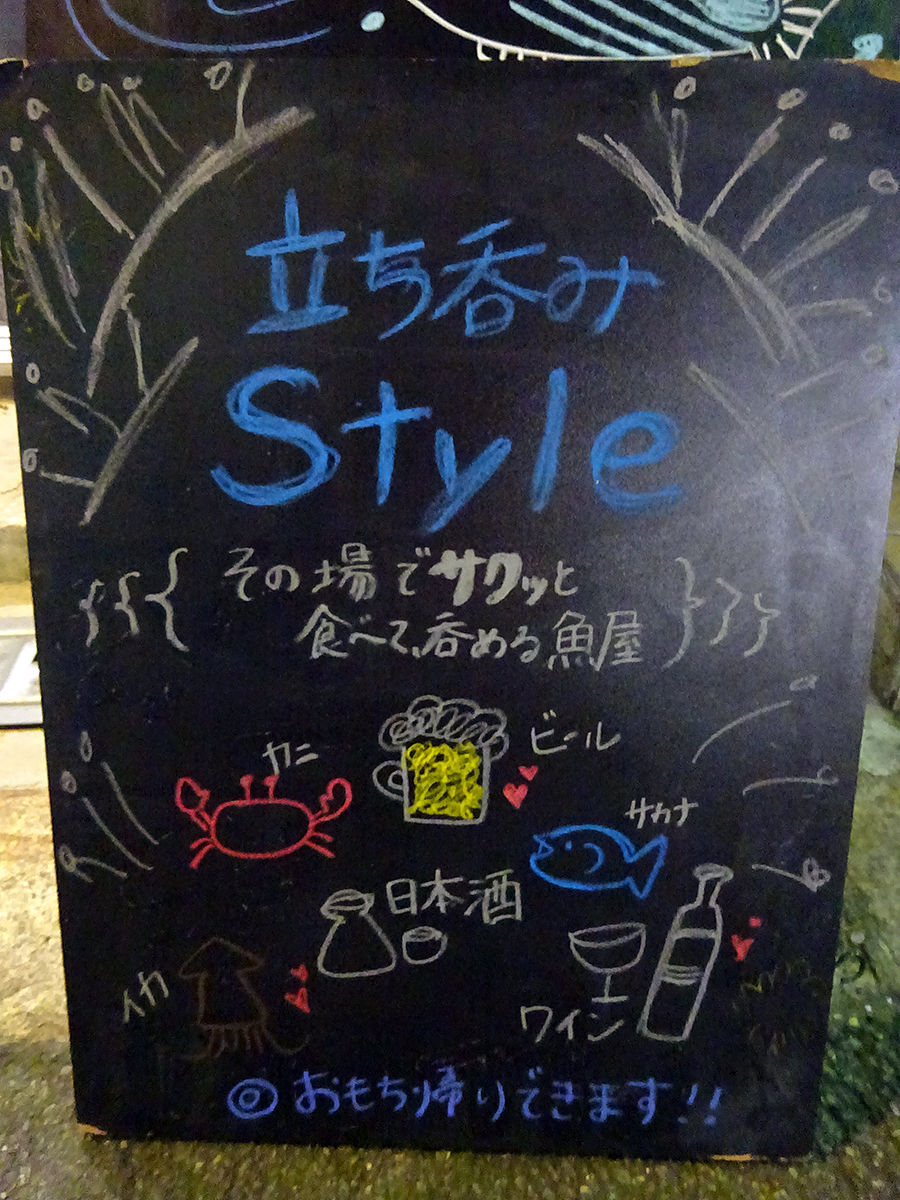 立ち呑み
Style
その場でサクッと
食べて、呑める魚屋
ビール
カニ
サカナ
日本酒
イカ
ワイン
◎おもち帰りできます!!